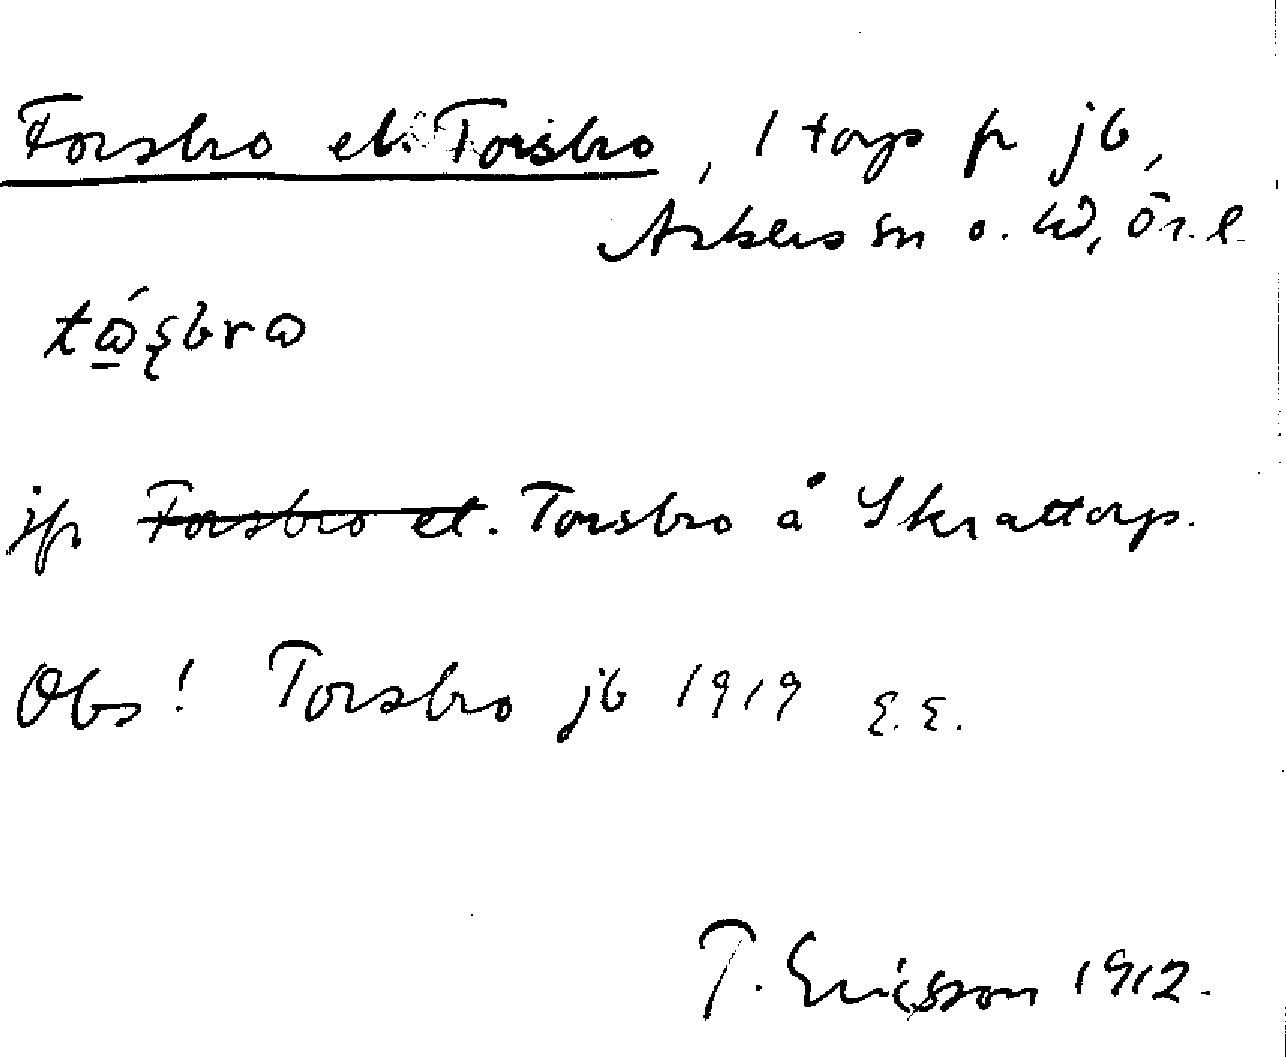 Forsbro el. Torsbro, 1 torp fr jb,
Askers sn o. hd, Ör. l.
tώ̲şbrω
jfr Forsbro el. Torsbro å Skrattorp.
Obs! Torsbro jb 1919 E.E.
T. Ericsson 1912.